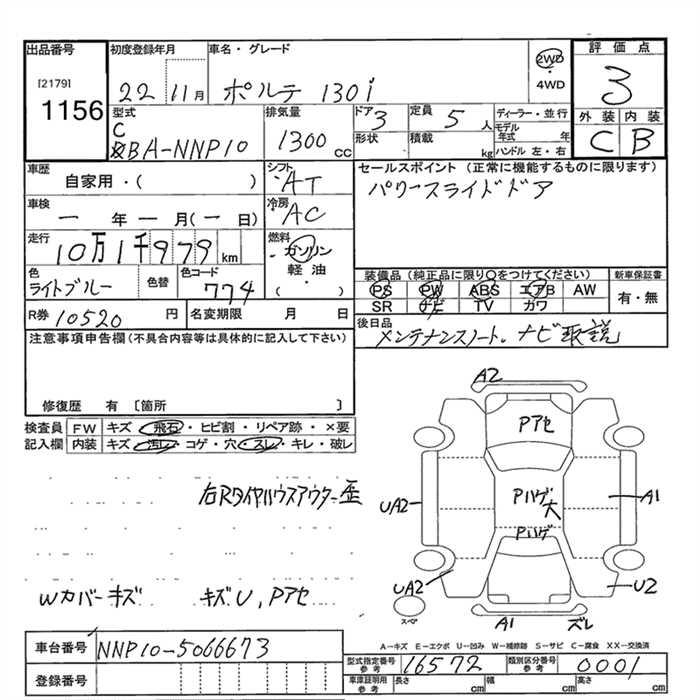 出品番号 初度登録年月 車名・グレード 評価点
[2179] 1156 22 11月 ポルテ 130i 2WD 4WD 3
型式 排気量 ドア 3 定員 5 人 ディーラー・並行 外装 内装
C BA-NNP10 1300 cc 形状 積載 kg モデル年式 年 ハンドル 左・右 C B
車歴 自家用・( ) シフト AT セールスポイント (正常に機能するものに限ります)
車検 一 年 一 月(一 日) 冷房 AC パワースライドドア
走行 10万1千979 km 燃料 ガソリン 軽油・( )
色 ライトブルー 色替 色コード 774 装備品 (純正品に限り○をつけてください) 新車保証書
PS PW ABS エアB AW 有・無
SR ナビ TV カワ
R券 10520 円 名変期限 月 日 後日品 メンテナンスノート、ナビ取説
注意事項申告欄 (不具合内容等は具体的に記入して下さい)
修復歴 有 〔箇所 〕
検査員記入欄 FW キズ・飛石・ヒビ割・リペア跡・×要
内装 キズ・汚レ・コゲ・穴・スレ・キレ・破レ
右Rタイヤハウスアウター歪
Wカバーキズ キズU、Pアセ
A2
Pアセ
UA2 Pハゲ大 A1
Pハゲ
UA2 U2
スペア A1 ズレ
A-キズ E-エクボ U-凹み W-補修跡 S-サビ C-腐食 XX-交換済
車台番号 NNP10-5066673 型式指定番号参考 16572 類別区分番号参考 0001
登録番号 車庫証明用参考 長さ cm 幅 cm 高さ cm